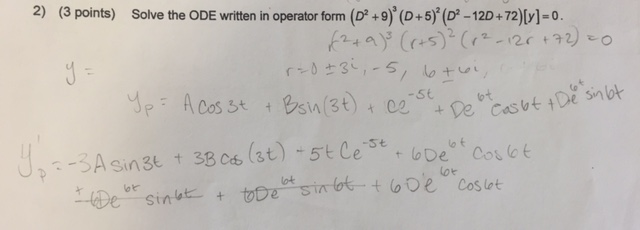 2) (3 points) Solve the ODE written in operator form (D² + 9)³ (D + 5)² (D² − 12D + 72)[y] = 0.
(r²+9)³ (r+5)² (r² − 12r + 72) = 0
y = r = 0 ± 3i, −5, 6 ± 6i,
Yp = A cos 3t + B sin(3t) + Ce^-5t + De^6t cos6t + De^6t sin6t
Y'p = −3A sin3t + 3B cos(3t) − 5t Ce^-5t + 6De^6t cos6t
+ 6De^6t sin6t + 6De^6t sin6t + 6De^6t cos6t